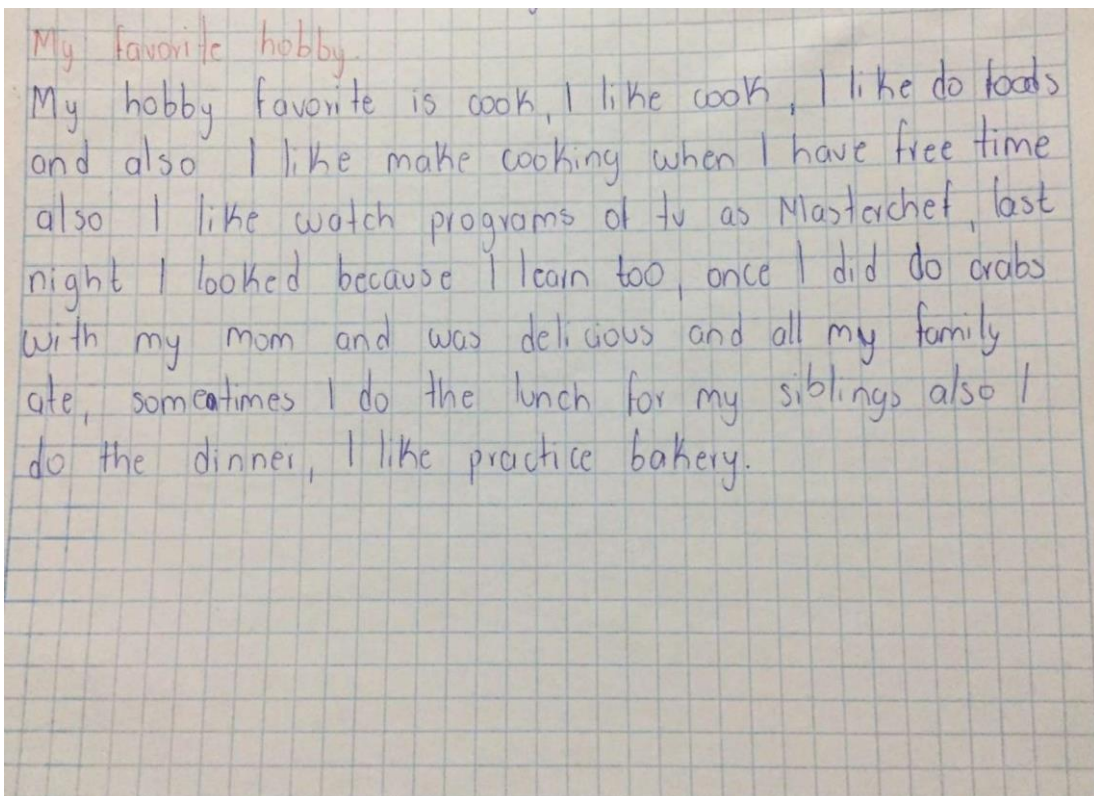 My favorite hobby.
My hobby favorite is cook, I like cook, I like do foods
and also I like make cooking when I have free time
also I like watch programs of tv as Masterchef, last
night I looked because I learn too, once I did do crabs
with my mom and was delicious and all my family
ate, sometimes I do the lunch for my siblings also I
do the dinner, I like practice bakery.